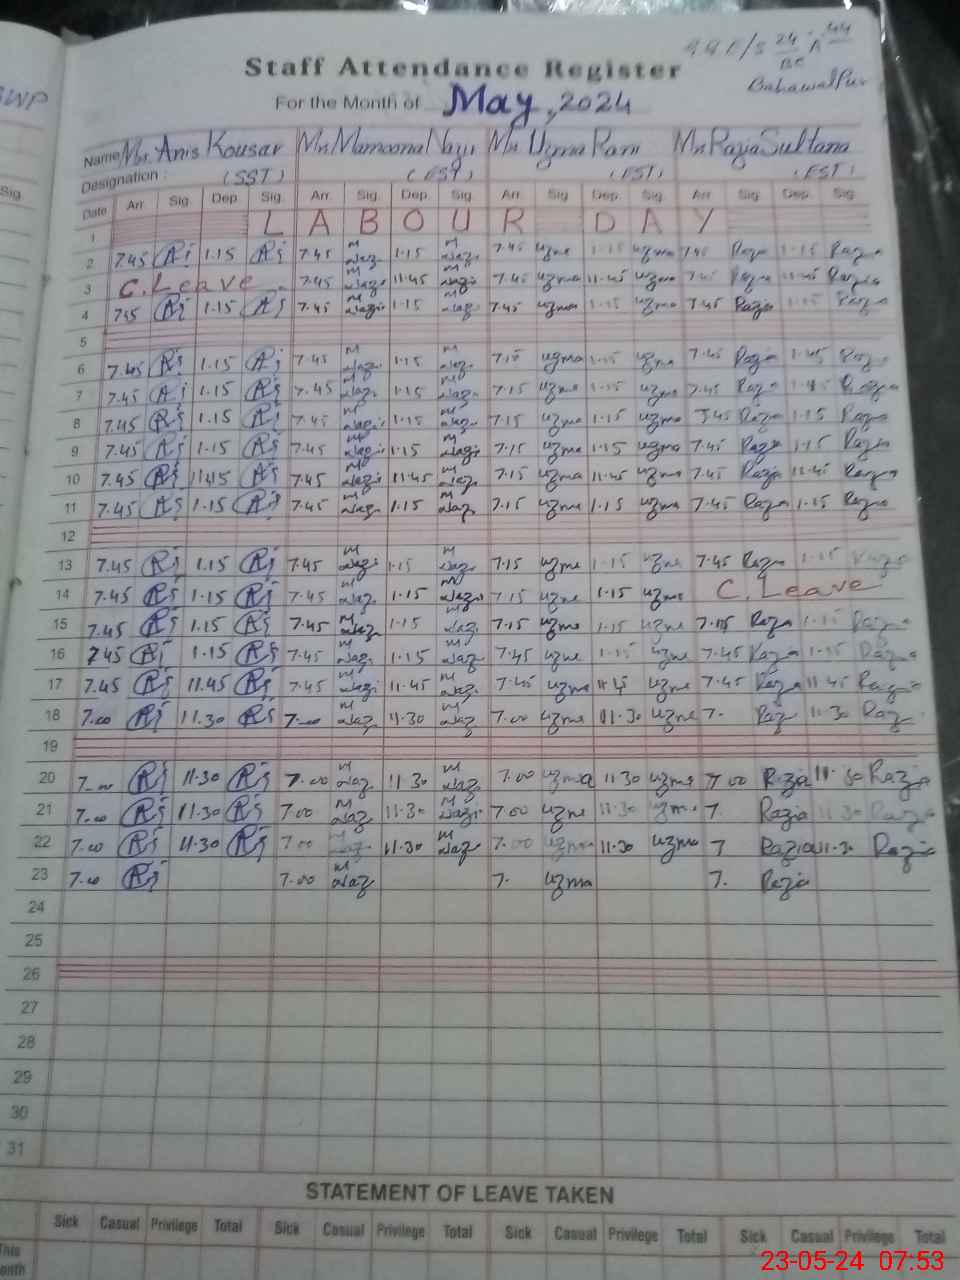 SWP
GGE/S 24/BC
Bahawalpur
Staff Attendance Register
For the Month of May, 2024
Name Mrs. Anis Kousar Mrs. Mamoona Nazi Mrs Uzma Rani Mrs Razia Sultana
Designation : (SST) (EST) (EST) (EST)
Sig.
Date Arr. Sig. Dep. Sig. Arr. Sig. Dep. Sig. Arr. Sig. Dep. Sig. Arr. Sig. Dep. Sig.
1 LABOUR DAY
2 7.45 1.15 7.45 M Naz 1.15 M Naz 7.45 Uzma 1.15 Uzma 7.45 Razia 1.15 Razia
3 C. Leave 7.45 M Naz 11.45 M Naz 7.45 Uzma 11.45 Uzma 7.45 Razia 11.45 Razia
4 7.45 1.15 7.45 M Naz 1.15 M Naz 7.45 Uzma 1.15 Uzma 7.45 Razia 1.15 Razia
5
6 7.45 1.15 7.45 M Naz 1.15 M Naz 7.15 Uzma 1.15 Uzma 7.45 Razia Razia
7 7.45 1.15 7.45 M Naz 1.15 M Naz 7.15 Uzma 1.15 Uzma 7.45 Razia Razia
8 7.45 1.15 7.45 M Naz 1.15 M Naz 7.15 Uzma 1.15 Uzma 7.45 Razia 1.15 Razia
9 7.45 1.15 7.45 M Naz 1.15 M Naz 7.15 Uzma 1.15 Uzma 7.45 Razia 1.15 Razia
10 7.45 11.45 7.45 M Naz 11.45 M Naz 7.15 Uzma 11.45 Uzma 7.45 Razia 11.45 Razia
11 7.45 1.15 7.45 M Naz 1.15 M Naz 7.15 Uzma 1.15 Uzma 7.45 Razia 1.15 Razia
12
13 7.45 1.15 7.45 M Naz 1.15 M Naz 7.15 Uzma 1.15 Uzma 7.45 Razia 1.15 Razia
14 7.45 1.15 7.45 M Naz 1.15 M Naz 7.15 Uzma 1.15 Uzma C. Leave
15 7.45 1.15 7.45 M Naz 1.15 M Naz 7.15 Uzma 1.15 Uzma Razia 1.15 Razia
16 7.45 1.15 7.45 M Naz 1.15 M Naz 7.45 Uzma 1.15 Uzma 7.45 Razia 1.15 Razia
17 7.45 11.45 7.45 M Naz 11.45 M Naz 7.45 Uzma 11.45 Uzma 7.45 Razia 11.45 Razia
18 7.00 11.30 7.00 M Naz 11.30 M Naz 7.00 Uzma 11.30 Uzma 7. Raz 11.30 Raz
19
20 7.00 11.30 7.00 M Naz 11.30 M Naz 7.00 Uzma 11.30 Uzma 7.00 Razia 11.30 Razia
21 7.00 11.30 7.00 M Naz 11.30 M Naz 7.00 Uzma 11.30 Uzma 7. Razia 11.30 Razia
22 7.00 11.30 7.00 M Naz 11.30 M Naz 7.00 Uzma 11.30 Uzma 7 Razia 11.30 Razia
23 7.00 7.00 M Naz 7. Uzma 7. Razia
24
25
26
27
28
29
30
31
STATEMENT OF LEAVE TAKEN
Sick Casual Privilege Total Sick Casual Privilege Total Sick Casual Privilege Total Sick Casual Privilege Total
This
onth
23-05-24 07:53